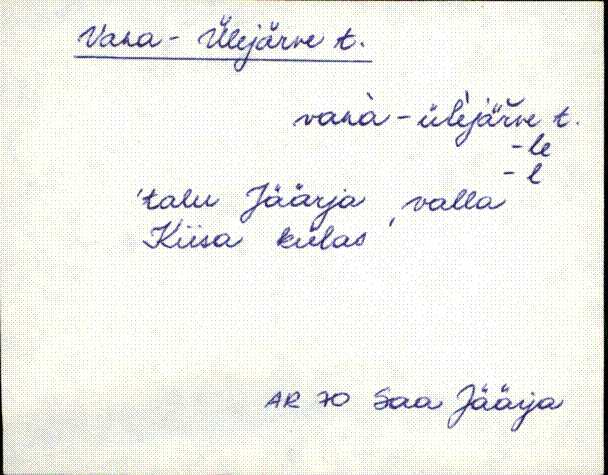 Vana - Ülejärve t.
vanà - ülèjäřve t.
-le
-l
'talu Jäärja valla
Kiisa külas'
AR 70 Saa Jäärja